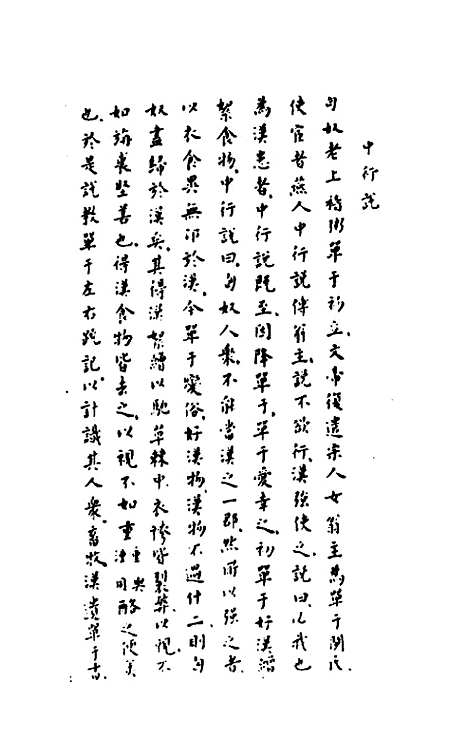 中行説
匈奴老上稽粥單于初立文帝復遣宗人女翁主為單于閼氏
使宦者燕人中行説傅翁主説不欲行漢強使之説曰必我也
為漢患者中行説既至因降單于單于愛幸之初單于好漢繒
絮食物中行説曰匈奴人衆不能當漢之一郡然所以強之者
以衣食異無卬於漢今單于變俗好漢物漢物不過什二則匈
奴盡歸於漢矣其得漢絮繒以馳草棘中衣袴皆裂弊以視不
如旃裘堅善也得漢食物皆去之以視不如重酪之便美
也於是説教單于左右疏記以計識其人衆畜牧漢遺單于書